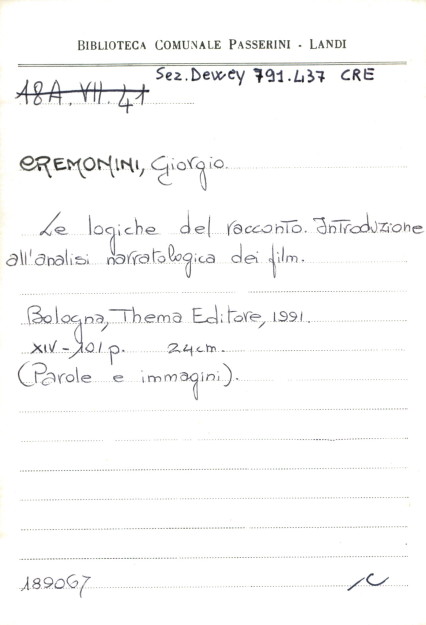 BIBLIOTECA COMUNALE PASSERINI - LANDI
Sez. Dewey 791.437 CRE
18A.VII.41
CREMONINI, Giorgio.
Le logiche del racconto. Introduzione
all'analisi narratologica dei film.
Bologna, Thema Editore, 1991.
XIV-101 p. 24cm.
(Parole e immagini).
189067